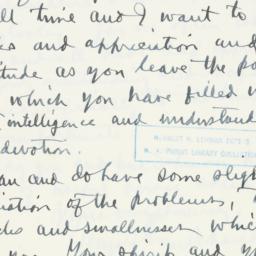 ll time and I want to
and appreciation and
itude as you leave the po
which you have filled w
intelligence and understand
devotion.
an and do have some slig
iation of the problems,
and smallnesses whic
you. Your spirit and y